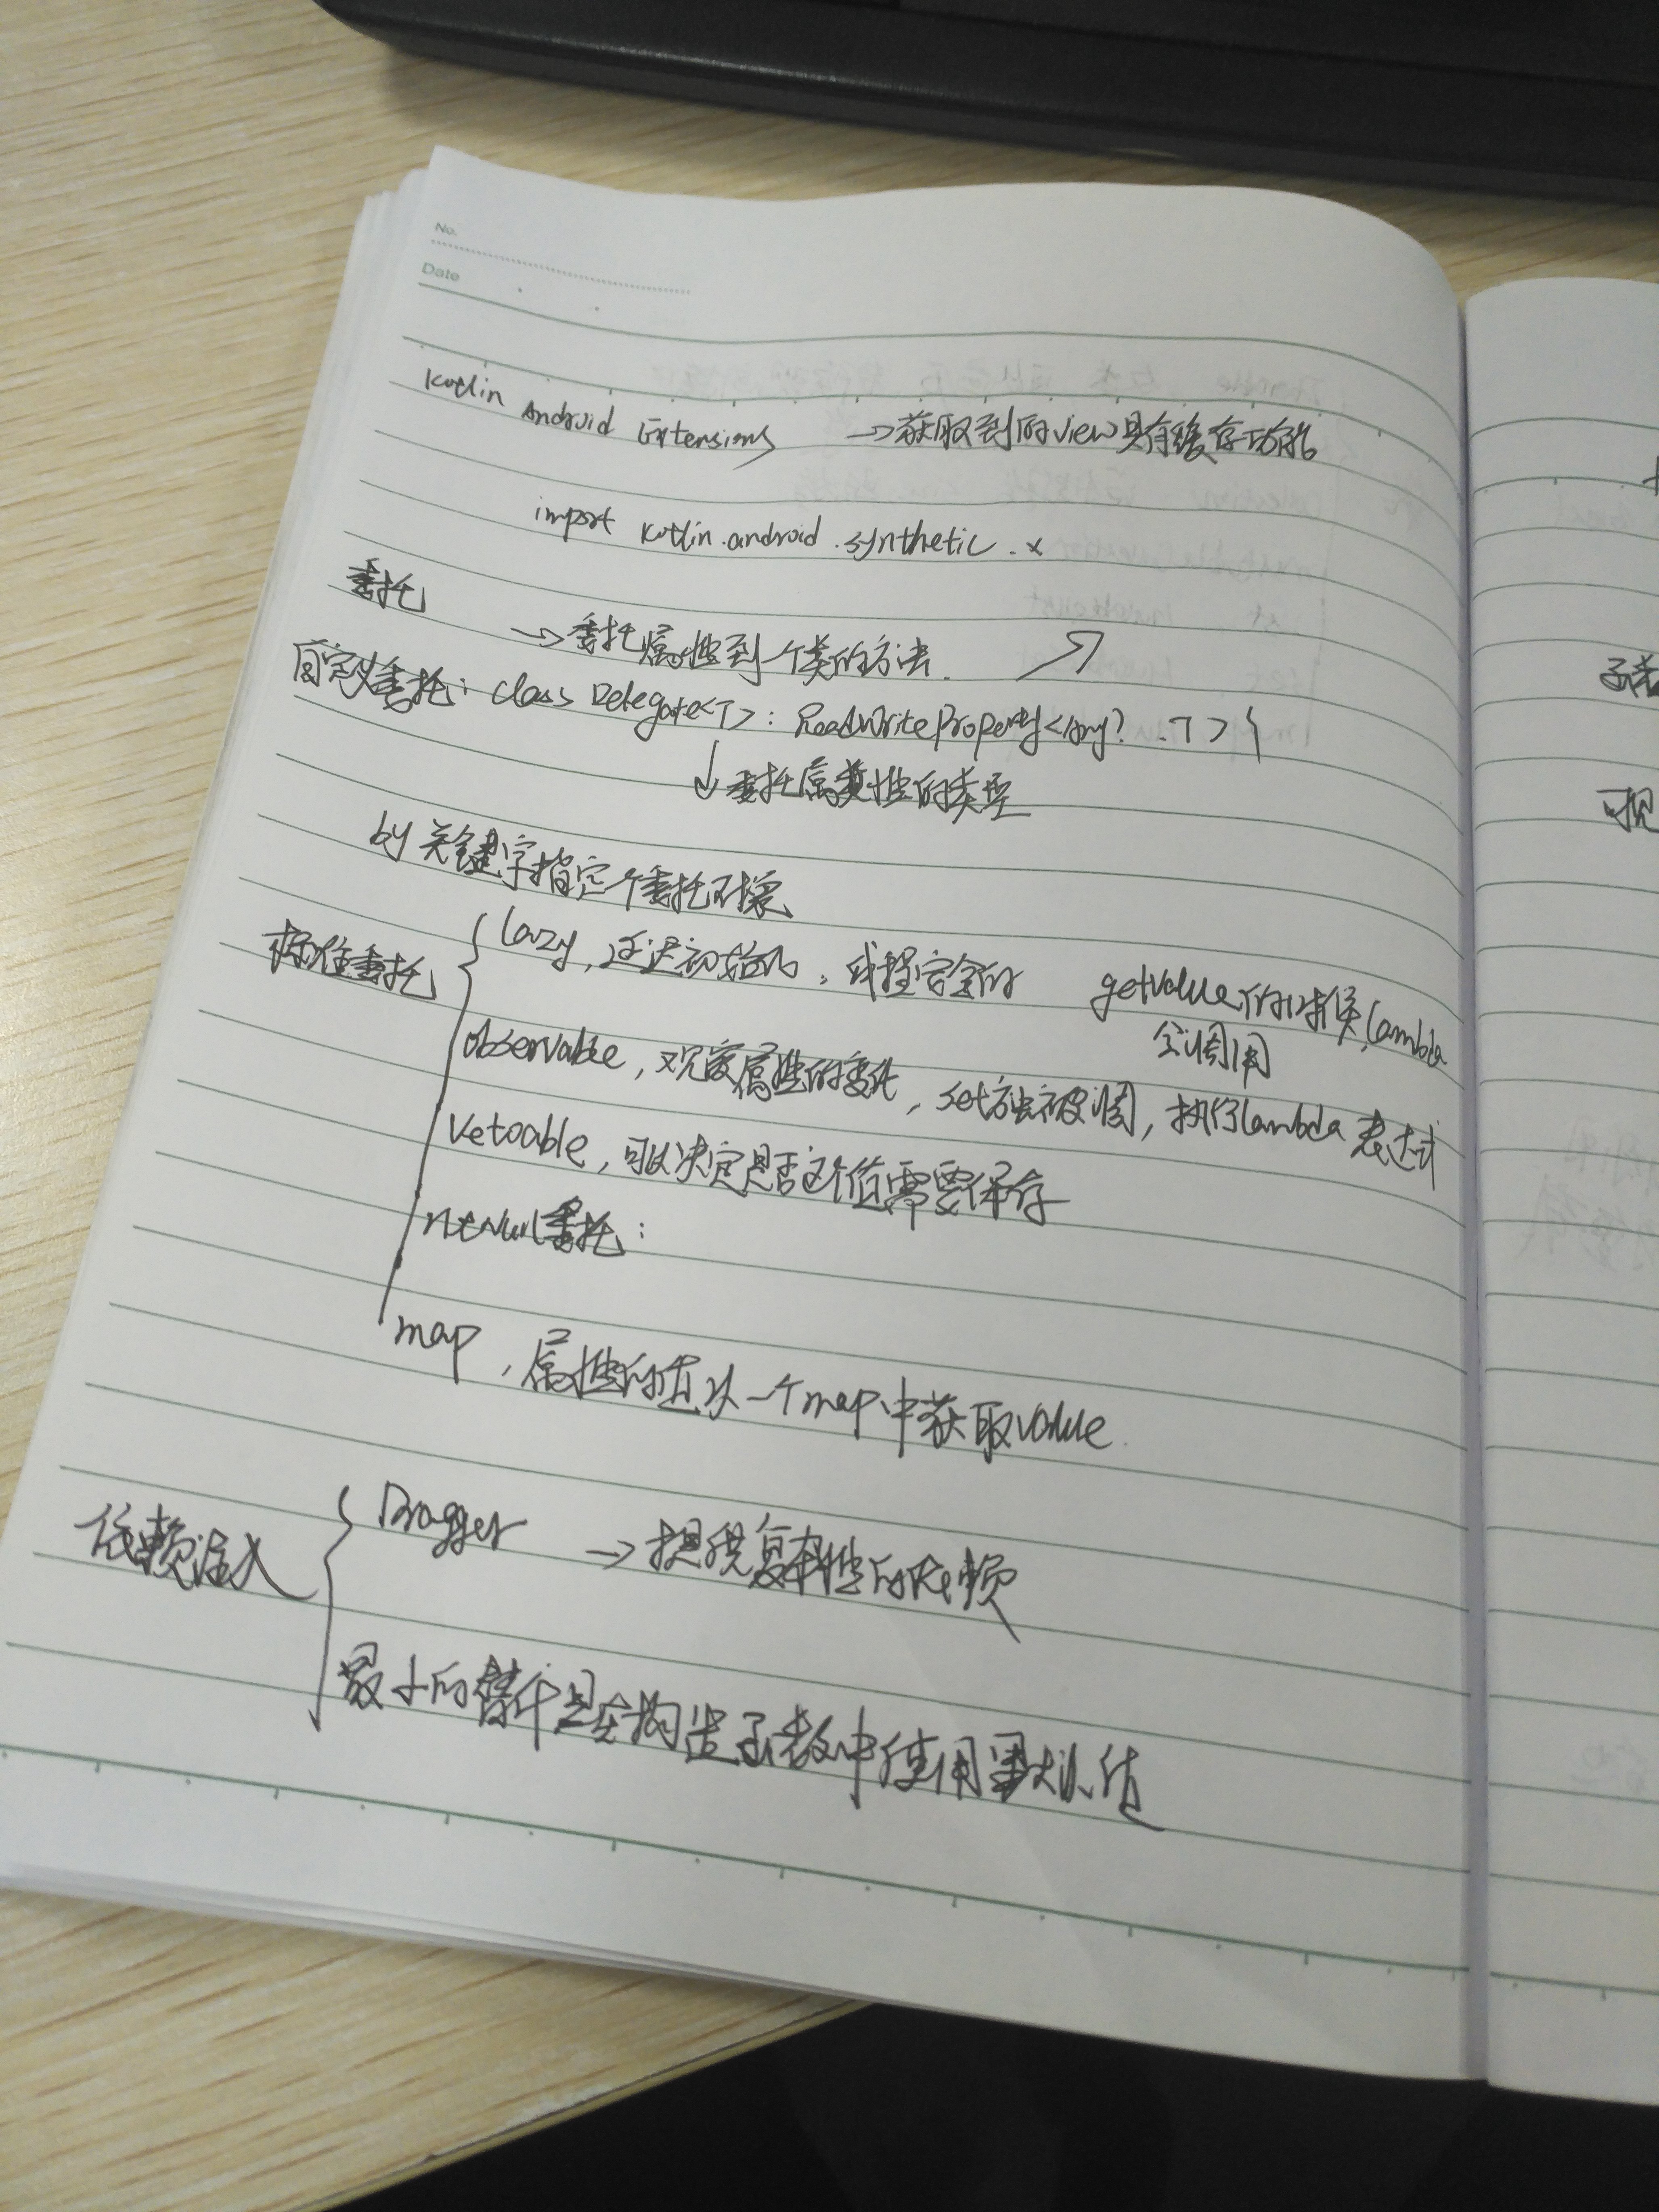 No.
Date
Kotlin Android Extensions →获取到的view具有缓存功能
import kotlin.android.synthetic.x
委托
→委托属性到一个类的方法.
自定义委托: class Delegate<T>: ReadWriteProperty<Any?.T>{
↓委托属性的类型
by关键字指定个委托对象
标准委托
lazy,延迟初始化,线程安全的 getValue的时候,lambda
会调用
observable,观察属性的委托,set方法被调,执行lambda表达式
Vetoable,可以决定是否这个值需要保存
notNull委托:
map,属性的住从一个map中获取value.
依赖注入
Dragger →提现复杂性的依赖
最小的替代是在构造函数中使用默认值
子类
可见